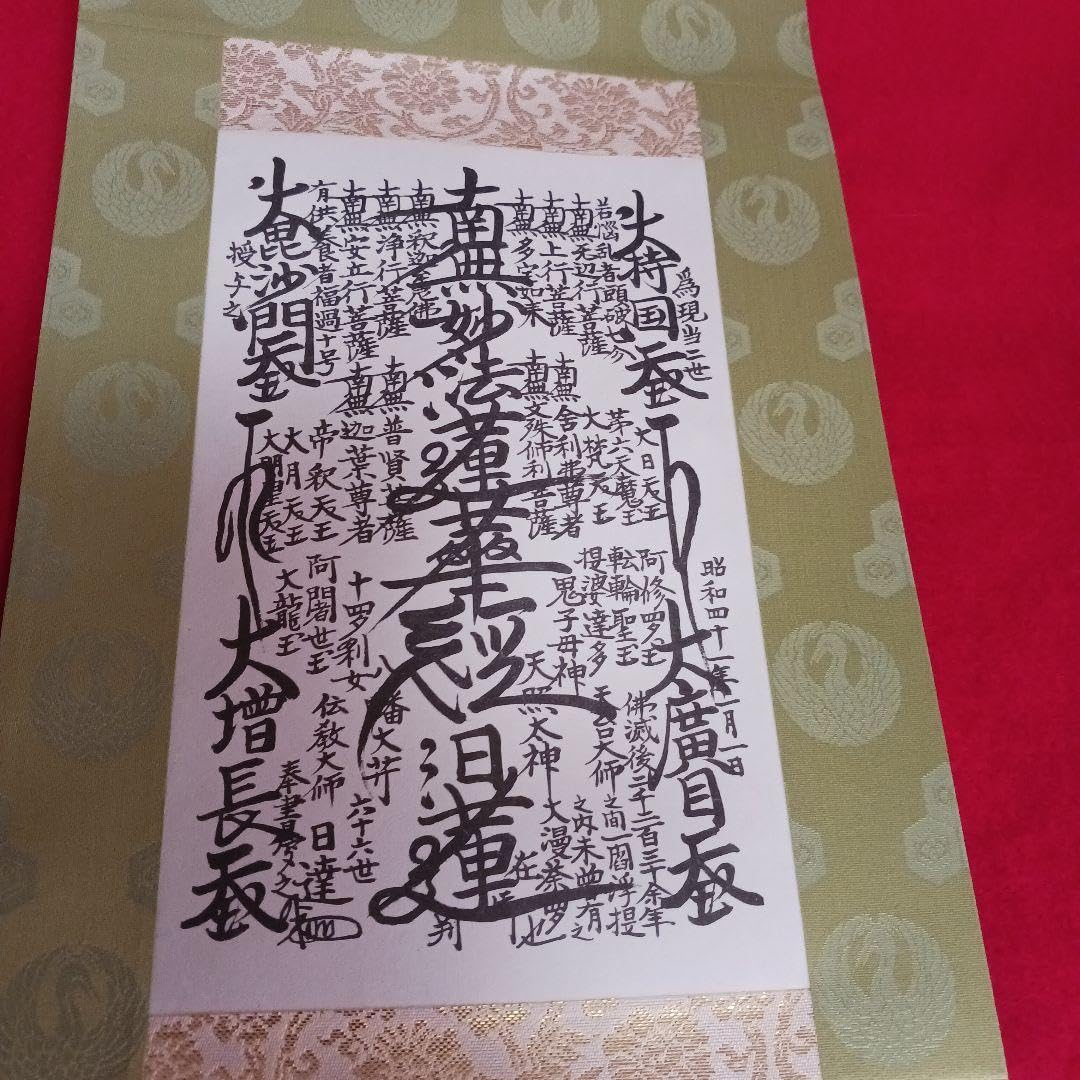 爲現当二世
大持国天王
大廣目天王
昭和四十一年一月一日
若悩乱者頭破七分
南無无辺行菩薩
南無上行菩薩
南無多宝如来
大日天王
第六天魔王
大梵天王
南無舎利弗尊者
南無文殊師利菩薩
阿修羅王
転輪聖王
提婆達多
鬼子母神
天照太神
天台大師
佛滅後二千二百三十余年
之間一閻浮提
之内未曽有之
大漫荼羅也
南無妙法蓮華経
日蓮
在
判
南無釈迦牟尼佛
南無浄行菩薩
南無安立行菩薩
有供養者福過十号
南無普賢菩薩
南無迦葉尊者
帝釈天王
大月天王
大明星天王
十羅刹女
阿闍世王
大龍王
八幡大菩薩
伝教大師
六十六世
日達
奉書写之
大毘沙門天王
授与之
大増長天王